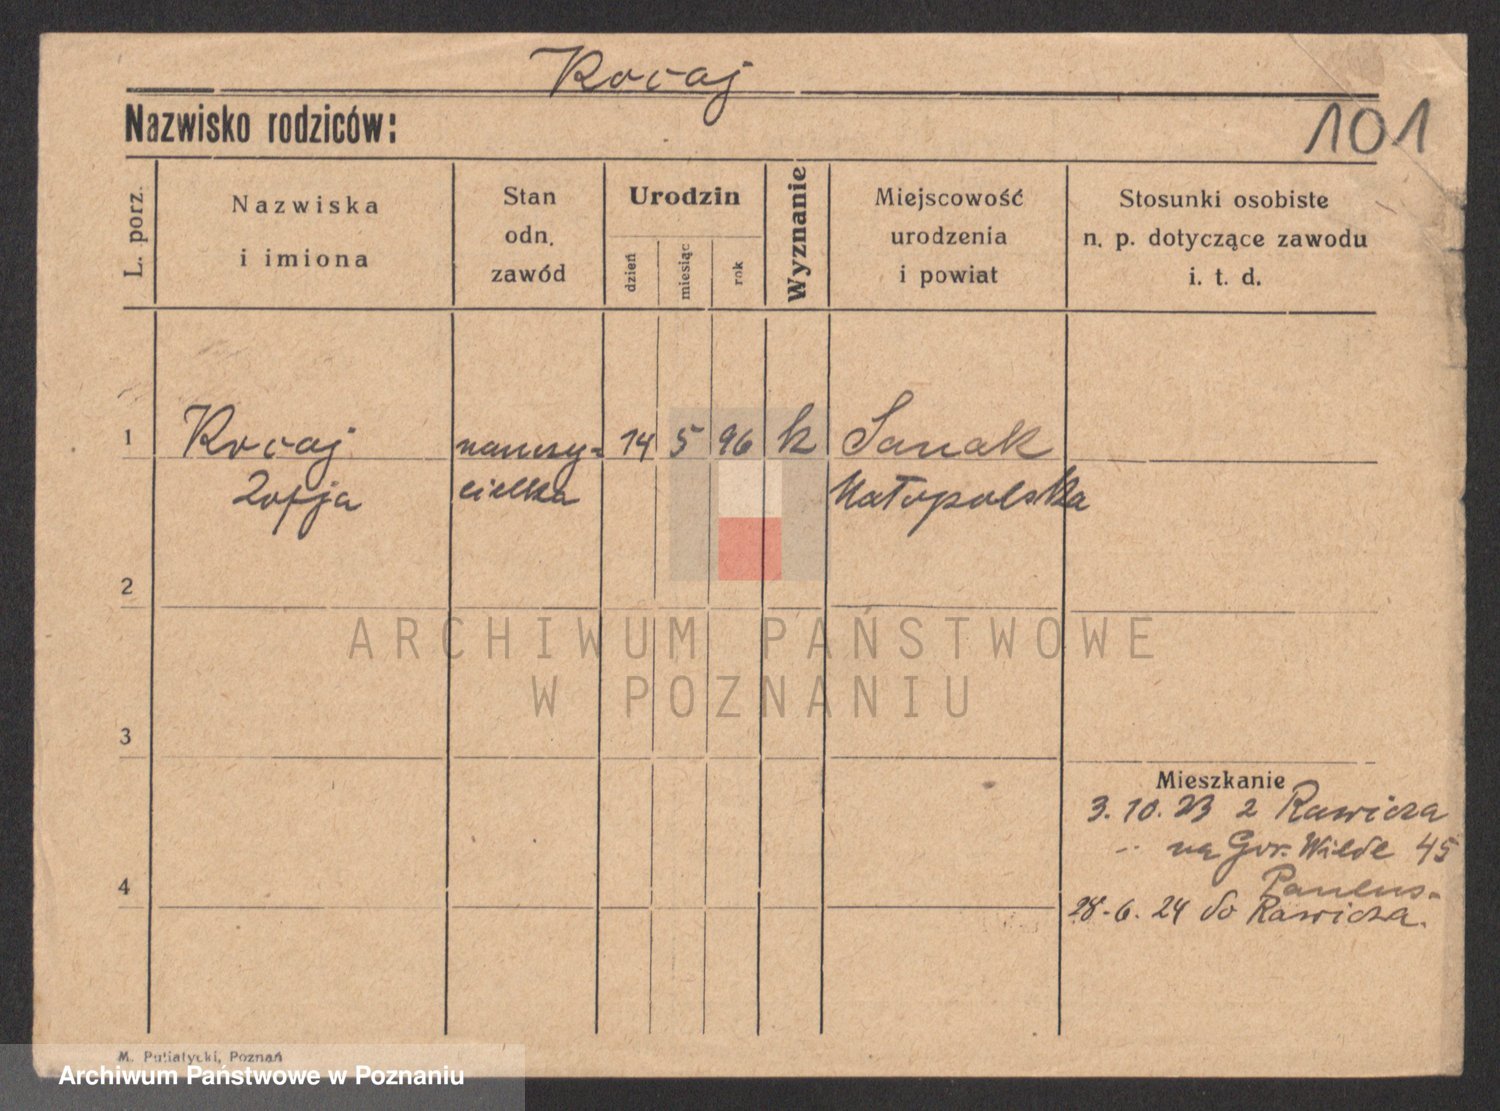 Kocaj
Nazwisko rodziców:
101
L. porz.
Nazwiska
i imiona
Stan
odn.
zawód
Urodzin
dzień
miesiąc
rok
Wyznanie
Miejscowość
urodzenia
i powiat
Stosunki osobiste
n. p. dotyczące zawodu
i. t. d.
1
Kocaj
Zofja
nauczy=
cielka
14
5
96
k
Sanok
Małopolska
2
3
4
Mieszkanie
3. 10. 23 z Rawicza
na Gór. Wilde 45
Paulus-
28-6. 24 do Rawicza.
ARCHIWUM PAŃSTWOWE
W POZNANIU
M. Putiatycki, Poznań
Archiwum Państwowe w Poznaniu